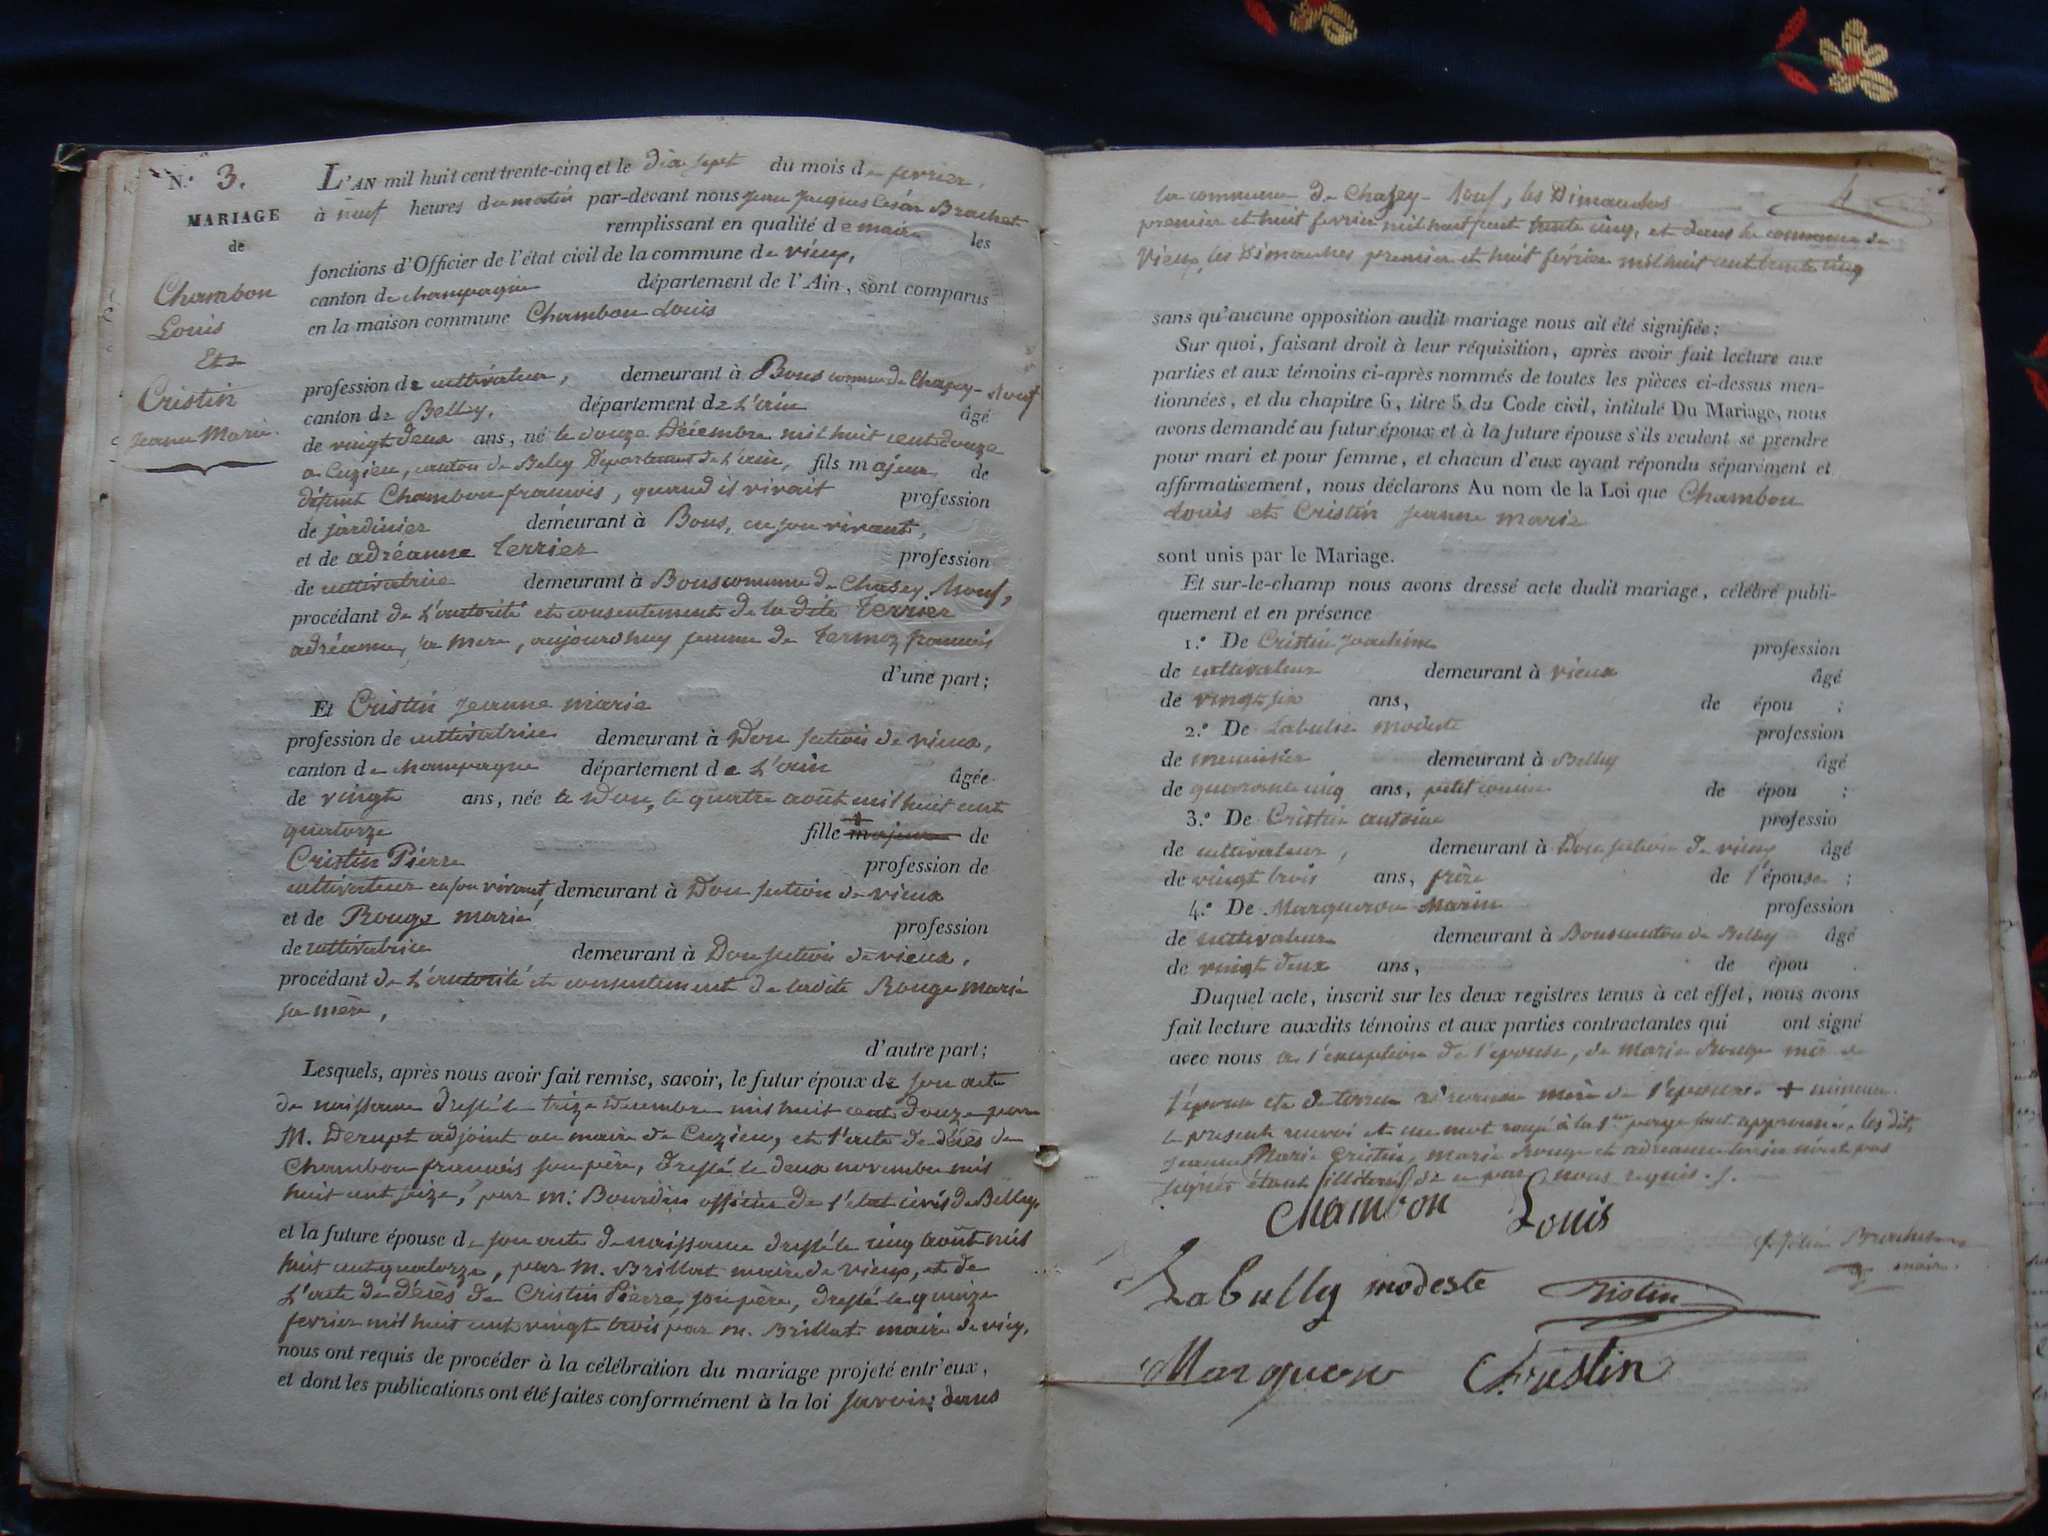 N.° 3.
MARIAGE
de
Chambon
Louis
Et
Cristin
Jeanne Marie
L'AN mil huit cent trente-cinq et le dix sept du mois de fevrier,
à neuf heures du matin par-devant nous Jean Jacques César Brachet
remplissant en qualité de maire les
fonctions d'Officier de l'état civil de la commune de vieux,
canton de champagne département de l'Ain, sont comparus
en la maison commune Chambon Louis
profession de cultivateur, demeurant à Bons commune de Chazey-Neuf
canton de Belley, département de L'ain âgé
de vingt deux ans, né le douze Décembre mil huit cent douze
a Cuzieu, canton de Beley Département de L'ain, fils majeur de
défunt Chambon francois, quand il vivait profession
de jardinier demeurant à Bons, en son vivant,
et de adréanne terrier profession
de cultivatrice demeurant à Bons commune de Chasey Neuf,
procédant de L'autorité et consentement de la dite terrier
adréanne, sa mere, aujourdhuy femme de termoz francois
d'une part;
Et Cristin Jeanne marie
profession de cultivatrice demeurant à Don section de vieux,
canton de champagne département de L'ain âgée
de vingt ans, née le Don, le quatre août mil huit cent
quatorze fille majeure de
Cristin Pierre profession de
cultivateur en son vivant, demeurant à Don section de vieux
et de Rouge marie profession
de cultivatrice demeurant à Don section de vieux,
procédant de L'autorité et consentement de ladite Rouge marie
sa mère,
d'autre part;
Lesquels, après nous avoir fait remise, savoir, le futur époux de son acte
de naissance dressé le treize décembre mil huit cent douze par
M. Derupt adjoint au maire de Cuzieu, et l'acte de décès de
Chambon francois son père, dressé le deux novembre mil
huit cent seize, par M. Bourdin officier de l'état civil de Belley,
et la future épouse de son acte de naissance dressé le cinq août mil
huit cent quatorze, par M. Brillat maire de vieux, et de
L'acte de décès de Cristin Pierre, son père, dressé le quinze
fevrier mil huit cent vingt trois par M. Brillat maire de vieu,
nous ont requis de procéder à la célébration du mariage projeté entr'eux,
et dont les publications ont été faites conformément à la loi savoir: dans
4
la commune de Chazey-Neuf, les Dimanches
premier et huit fevrier mil huit cent trente cinq, et dans la commune de
Vieux, les Dimanches premier et huit février mil huit cent trente cinq
sans qu'aucune opposition audit mariage nous ait été signifiée;
Sur quoi, faisant droit à leur réquisition, après avoir fait lecture aux
parties et aux témoins ci-après nommés de toutes les pièces ci-dessus men-
tionnées, et du chapitre 6, titre 5 du Code civil, intitulé Du Mariage, nous
avons demandé au futur époux et à la future épouse s'ils veulent se prendre
pour mari et pour femme, et chacun d'eux ayant répondu séparément et
affirmativement, nous déclarons Au nom de la Loi que Chambon
Louis et Cristin Jeanne marie
sont unis par le Mariage.
Et sur-le-champ nous avons dressé acte dudit mariage, célébré publi-
quement et en présence
1.° De Cristin Joachim profession
de cultivateur demeurant à vieux âgé
de vingt six ans, de épou ;
2.° De Labulie modeste profession
de menuisier demeurant à Belley âgé
de quarante cinq ans, petit cousin de épou ;
3.° De Cristin antoine professio
de cultivateur, demeurant à Don section de vieux âgé
de vingt trois ans, frère de l'épouse ;
4.° De Marqueron Marin profession
de cultivateur demeurant à Bons canton de Belley âgé
de vingt deux ans, de épou
Duquel acte, inscrit sur les deux registres tenus à cet effet, nous avons
fait lecture auxdits témoins et aux parties contractantes qui ont signé
avec nous a l'exception de l'épouse, de Marie Rouge mère de
l'épouse et de terrier adréanne mère de l'époux. + mineure
le présent renvoi et un mot rayé à la 1ère page sont approuvés. les dit,
Jeanne Marie Cristin, marie Rouge et adréanne terrier n'ont pas
signés étant illétrées de ce par nous requis./.
Chambon Louis
Brachet
maire.
Labully modeste Cristin
Marqueron Cristin